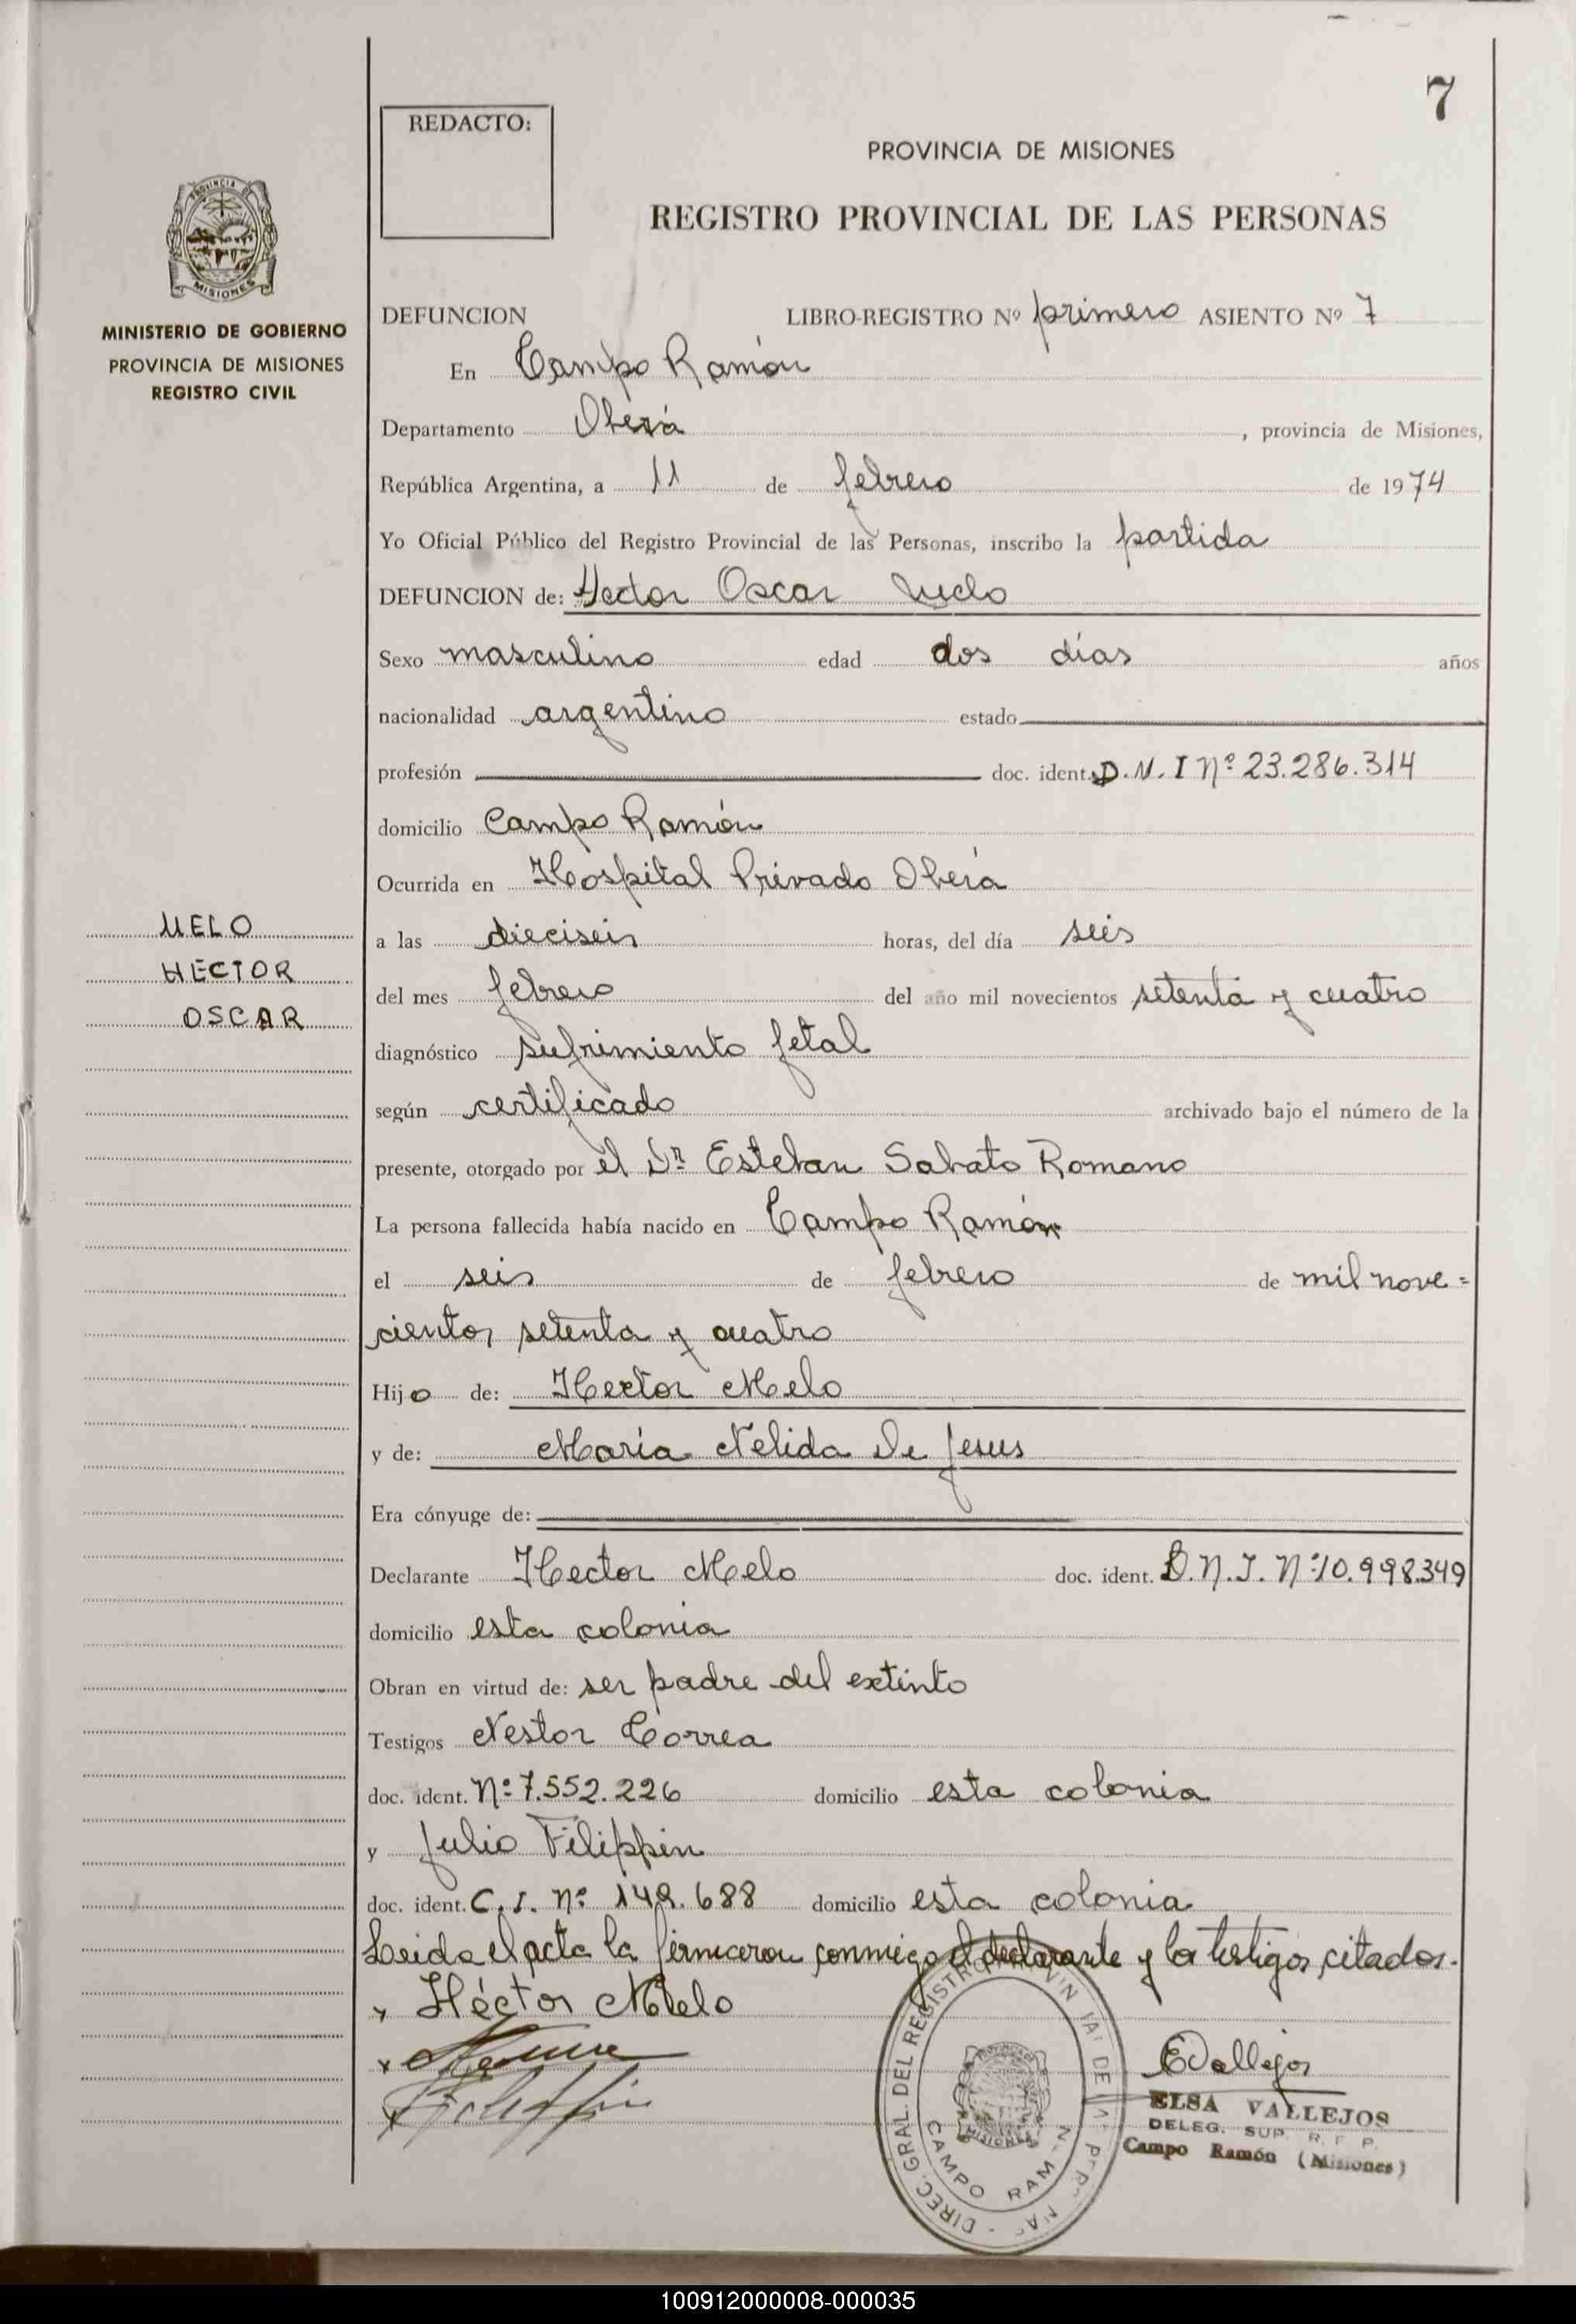 7
REDACTO:
PROVINCIA DE MISIONES
REGISTRO PROVINCIAL DE LAS PERSONAS
PROVINCIA DE
MISIONES
MINISTERIO DE GOBIERNO
PROVINCIA DE MISIONES
REGISTRO CIVIL
DEFUNCION LIBRO-REGISTRO Nº primero ASIENTO Nº 7
En Campo Ramón
Departamento Oberá, provincia de Misiones,
República Argentina, a 11 de febrero de 1974
Yo Oficial Público del Registro Provincial de las Personas, inscribo la partida
DEFUNCION de: Hector Oscar Melo
Sexo masculino edad dos días años
nacionalidad argentino estado
profesión doc. ident. D.N.I Nº 23.286.314
domicilio Campo Ramón
Ocurrida en Hospital Privado Oberá
MELO
HECTOR
OSCAR
a las dieciseis horas, del día seis
del mes febrero del año mil novecientos setenta y cuatro
diagnóstico sufrimiento fetal
según certificado archivado bajo el número de la
presente, otorgado por el Dr Esteban Sabato Romano
La persona fallecida había nacido en Campo Ramón
el seis de febrero de mil nove=
cientos setenta y cuatro
Hijo de: Hector Melo
y de: Maria Nelida De Jesus
Era cónyuge de:
Declarante Hector Melo doc. ident. D.N.I. Nº 10.998.349
domicilio esta colonia
Obran en virtud de: ser padre del extinto
Testigos Nestor Correa
doc. ident. Nº 7.552.226 domicilio esta colonia
y Julio Filippin
doc. ident. C.I. Nº 149.688 domicilio esta colonia
Leida el acta la firmaron conmigo el declarante y los testigos citados.
x Héctor Melo
x
x
EVallejos
ELSA VALLEJOS
DELEG. SUP. R. P.
Campo Ramón (Misiones)
DIREC. GRAL. DEL REGISTRO
CAMPO RAMON
MISIONES
100912000008-000035